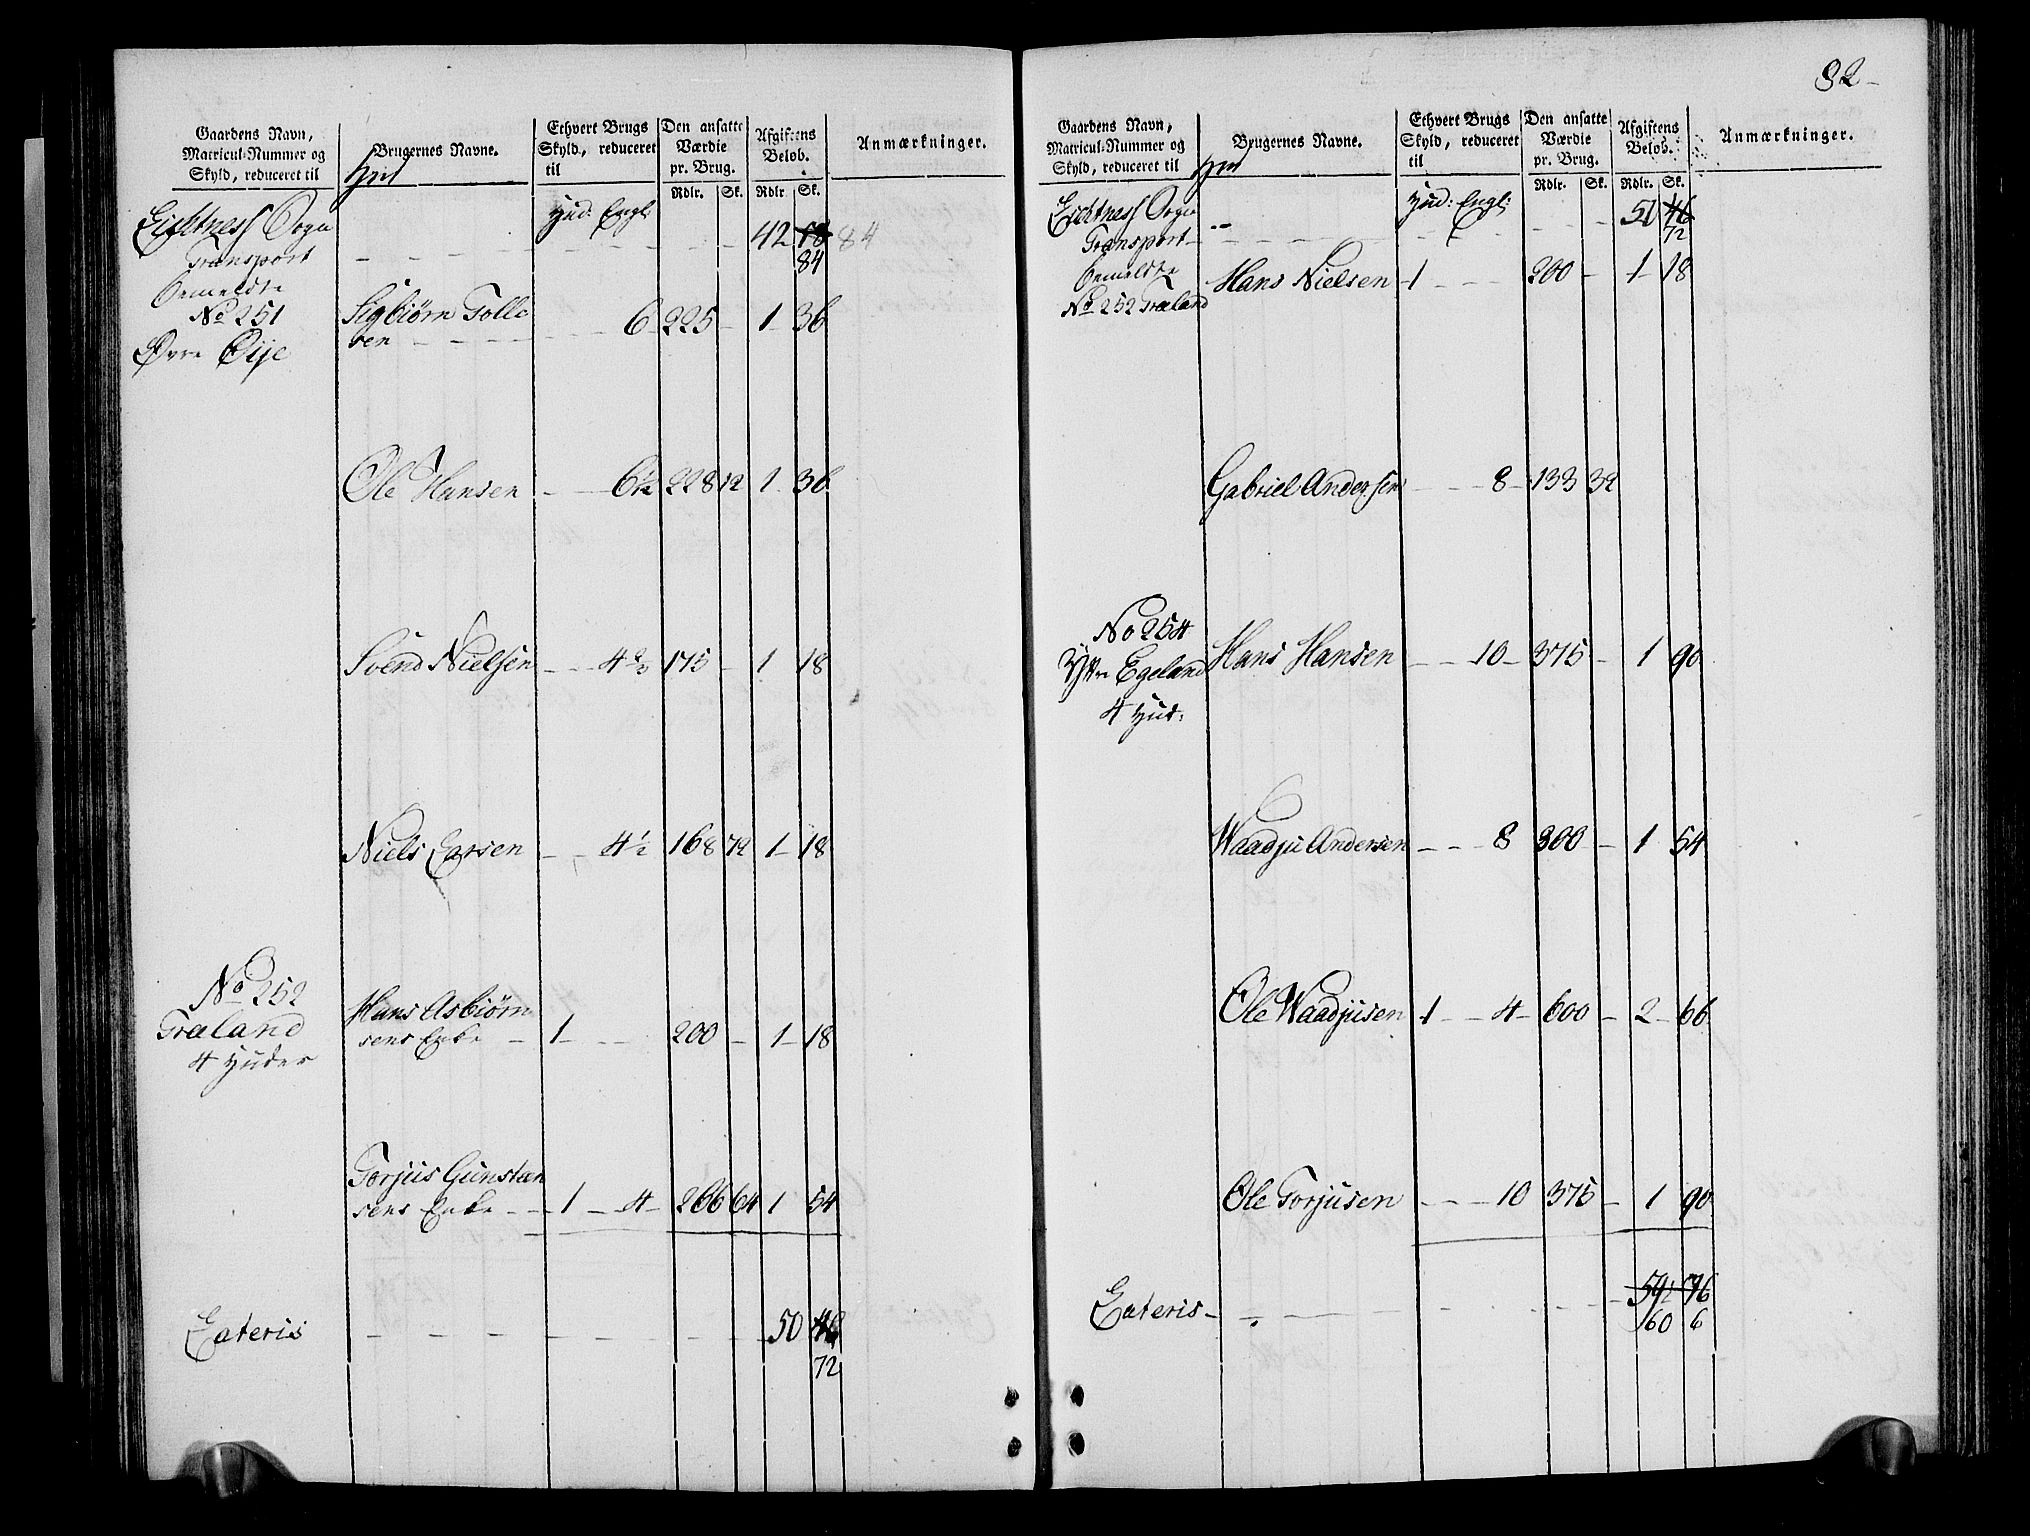 82
Gaardens Navn,
Matricul-Nummer og
Skyld, reduceret til
Hud
Brugernes Navne.
Ethvert Brugs
Skyld, reduceret
til
Den ansatte
Værdie
pr. Brug.
Rdlr. Sk.
Afgiftens
Beløb.
Rdlr. Sk.
Anmærkninger.
Sogn Hud: Engl:
Transport - - - 42 18 84
84
bemeldte
No 251 Sigbiørn Tolle
sen - - - 6 225 - 1 36
Øvre Øije
Ole Hansen - - 6½ 228 12 1 36
Svend Nielsen - - 4⅔ 175 - 1 18
Niels Larsen - - 4½ 168 72 1 18
No 252
Træland
4 Huder
Hans Asbiørn
sens Enke - 1 - - 200 - 1 18
Torjus Gunsten
sens Enke - - 1 - 4 - 266 64 1 54
Lateris - - - 50 46
72
Gaardens Navn,
Matricul-Nummer og
Skyld, reduceret til
Hud
Brugernes Navne.
Ethvert Brugs
Skyld, reduceret
til
Den ansatte
Værdie
pr. Brug.
Rdlr. Sk.
Afgiftens
Beløb.
Rdlr. Sk.
Anmærkninger.
Sogn Hud: Engl:
Transport - - - 50 46
72
bemeldte
No 252 Træland
Hans Nielsen - 1 - - 200 - 1 18
Gabriel Andersen - - 8 - 133 32
No 254
Ytre Egeland
4 Hud:
Hans Hansen - - 10 - 375 - 1 90
Waadju Andersen - - 8 300 - 1 54
Ole Waadjusen 1 - 4 - 600 - 2 - 66
Ole Torjusen - - 10 375 - 1 90
Lateris - - - 59 76
60 6